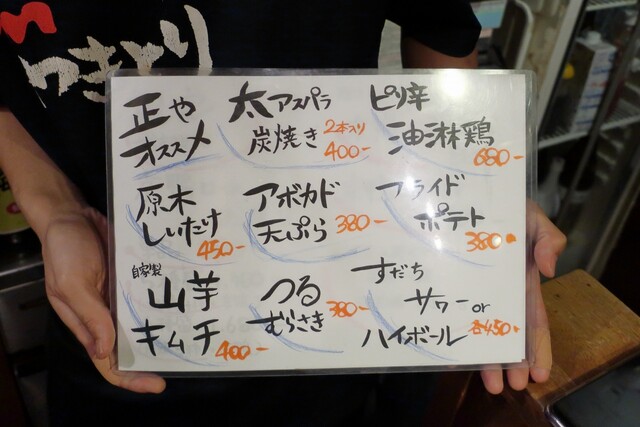 やきとり
正や
オススメ
太アスパラ
炭焼き 2本入り
400-
ピリ辛
油淋鶏
680-
原木
しいたけ
450-
アボカド
天ぷら 380-
フライド
ポテト
380.
自家製
山芋
キムチ
400-
つる
むらさき
380-
すだち
サワー or
ハイボール
各450.